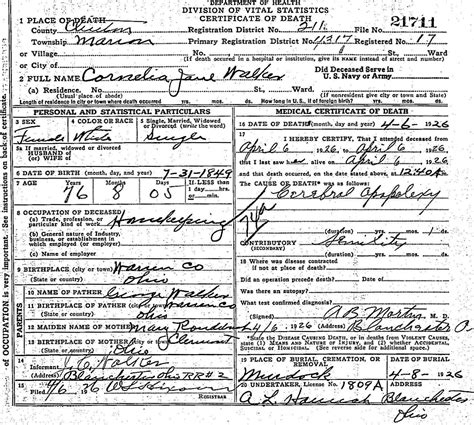 DEPARTMENT OF HEALTH
DIVISION OF VITAL STATISTICS
CERTIFICATE OF DEATH
1 PLACE OF DEATH
County Clinton Registration District No. File No. 21711
Township Marion Primary Registration District No. 4317 Registered No. 17
or Village No. St. Ward
or City of (If death occurred in a hospital or institution, give its NAME instead of street and number)
2 FULL NAME Cornelia Jane Walker Did Deceased Serve in U. S. Navy or Army
(a) Residence. No. St., Ward.
(Usual place of abode) (If nonresident give city or town and State)
Length of residence in city or town where death occurred yrs. mos. ds. How long in U. S., if of foreign birth? yrs. mos. ds.
PERSONAL AND STATISTICAL PARTICULARS
3 SEX 4 COLOR OR RACE 5 Single, Married, Widowed or Divorced
Female White Single
5a If married, widowed or divorced
HUSBAND of
(or) WIFE of
6 DATE OF BIRTH (month, day, and year) 7-31-1849
7 AGE Years Months Days If LESS than 1 day, hrs. or min.
76 8 05
8 OCCUPATION OF DECEASED
(a) Trade, profession, or particular kind of work Housekeeping
(b) General nature of Industry, business, or establishment in which employed (or employer)
(c) Name of employer
9 BIRTHPLACE (city or town) Warren Co
Ohio
PARENTS
10 NAME OF FATHER George Walker
11 BIRTHPLACE OF FATHER Warren Co
12 MAIDEN NAME OF MOTHER Mary
13 BIRTHPLACE OF MOTHER Clermont
Ohio
14 Walker
Blanchester O RR#2
15 4/6, 26
MEDICAL CERTIFICATE OF DEATH
16 DATE OF DEATH (month, day and year) 4-6-1926
17 I HEREBY CERTIFY, That I attended deceased from
April 6, 1926, to April 6, 1926
that I last saw h alive on April 6, 1926
and that death occurred, on the date stated above, at 12:40 A m.
The CAUSE OF DEATH* was as follows:
Cerebral Apoplexy
74a
(duration) yrs. mos. 1 ds.
CONTRIBUTORY Senility
(SECONDARY)
(duration) yrs. mos. ds.
18 Where was disease contracted
if not at place of death?
Did an operation precede death? Date of
Was there an autopsy?
What test confirmed diagnosis?
(Signed) , M. D.
4/6, 1926 (Address) Blanchester O.
*State the DISEASE CAUSING DEATH, or in deaths from VIOLENT CAUSES, state (1) MEANS AND NATURE OF INJURY, and (2) whether ACCIDENTAL, SUICIDAL, or HOMICIDAL. (See reverse side for additional space.)
19 PLACE OF BURIAL, CREMATION, OR REMOVAL DATE OF BURIAL
Murdock 4-8-1926
20 UNDERTAKER, License No. 1809A
Blanchester
Ohio
of OCCUPATION is very important. See instructions on back of certificate.